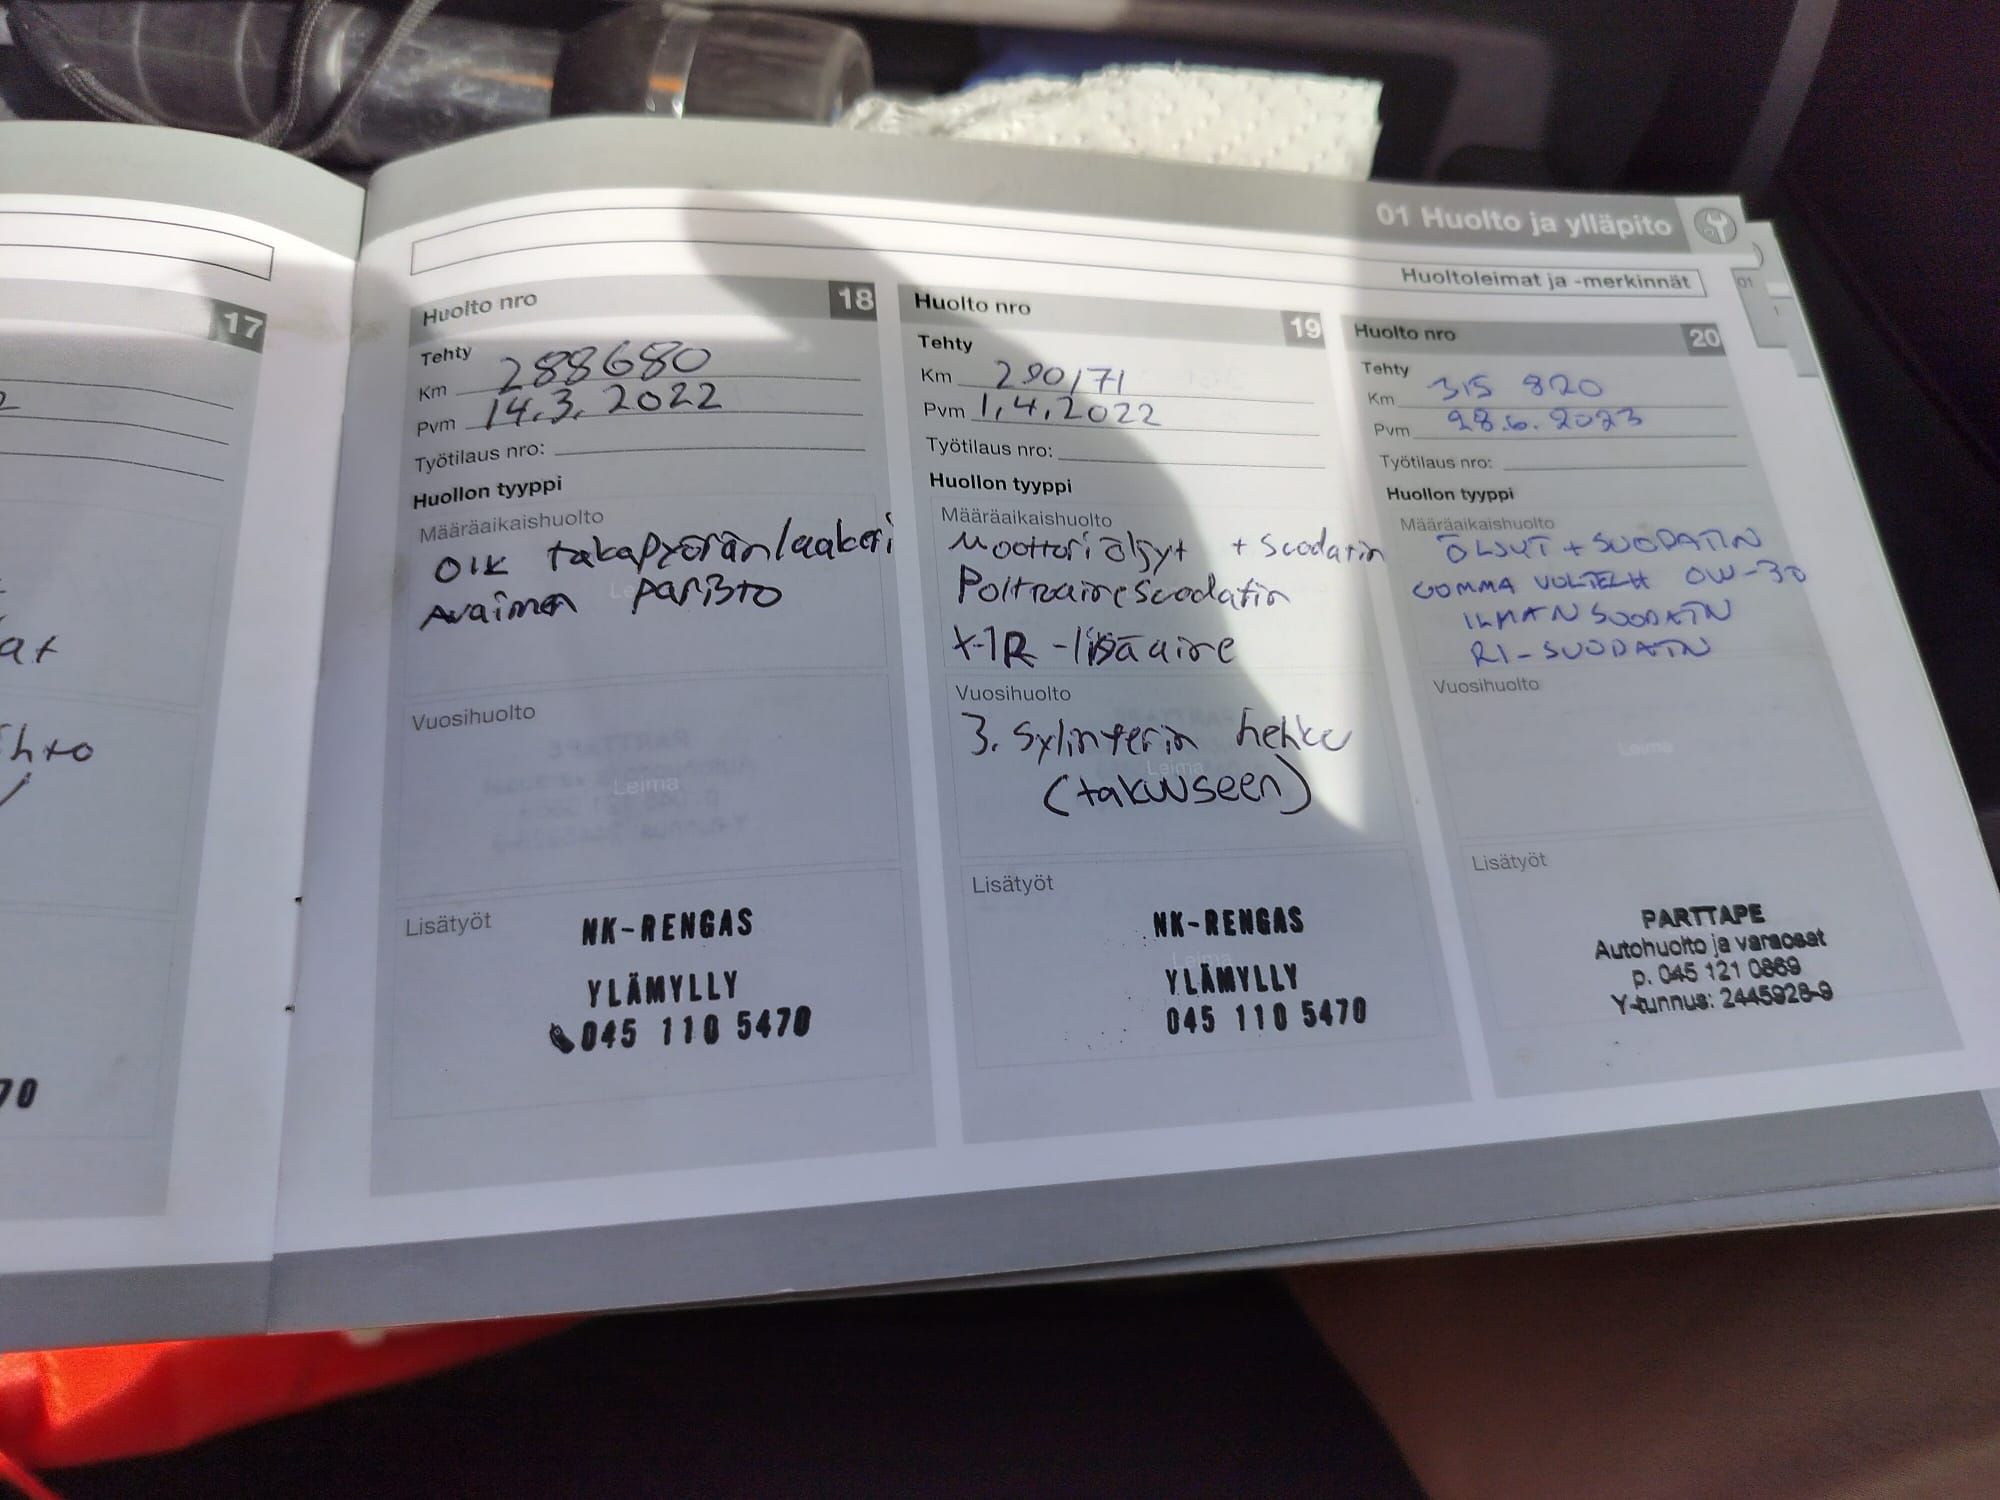 01 Huolto ja ylläpito
Huoltoleimat ja -merkinnät
01
17
70
Huolto nro 18
Tehty
Km 288680
Pvm 14.3.2022
Työtilaus nro:
Huollon tyyppi
Määräaikaishuolto
Oik takapyörän laakeri
Avaimen paristo
Vuosihuolto
Leima
Lisätyöt
NK-RENGAS
YLÄMYLLY
045 110 5470
Huolto nro 19
Tehty
Km 290171
Pvm 1.4.2022
Työtilaus nro:
Huollon tyyppi
Määräaikaishuolto
Moottoriöljyt + suodatin
Polttoainesuodatin
X-1R -lisäaine
Vuosihuolto
3. Sylinterin hehku
Leima
(takuuseen)
Lisätyöt
NK-RENGAS
Leima
YLÄMYLLY
045 110 5470
Huolto nro 20
Tehty
Km 315 820
Pvm 28.6.2023
Työtilaus nro:
Huollon tyyppi
Määräaikaishuolto
ÖLJYT + SUODATIN
0W-30
ILMANSUODATIN
RI-SUODATIN
Vuosihuolto
Leima
Lisätyöt
PARTTAPE
Autohuolto ja varaosat
p. 045 121 0869
Y-tunnus: 2445928-9